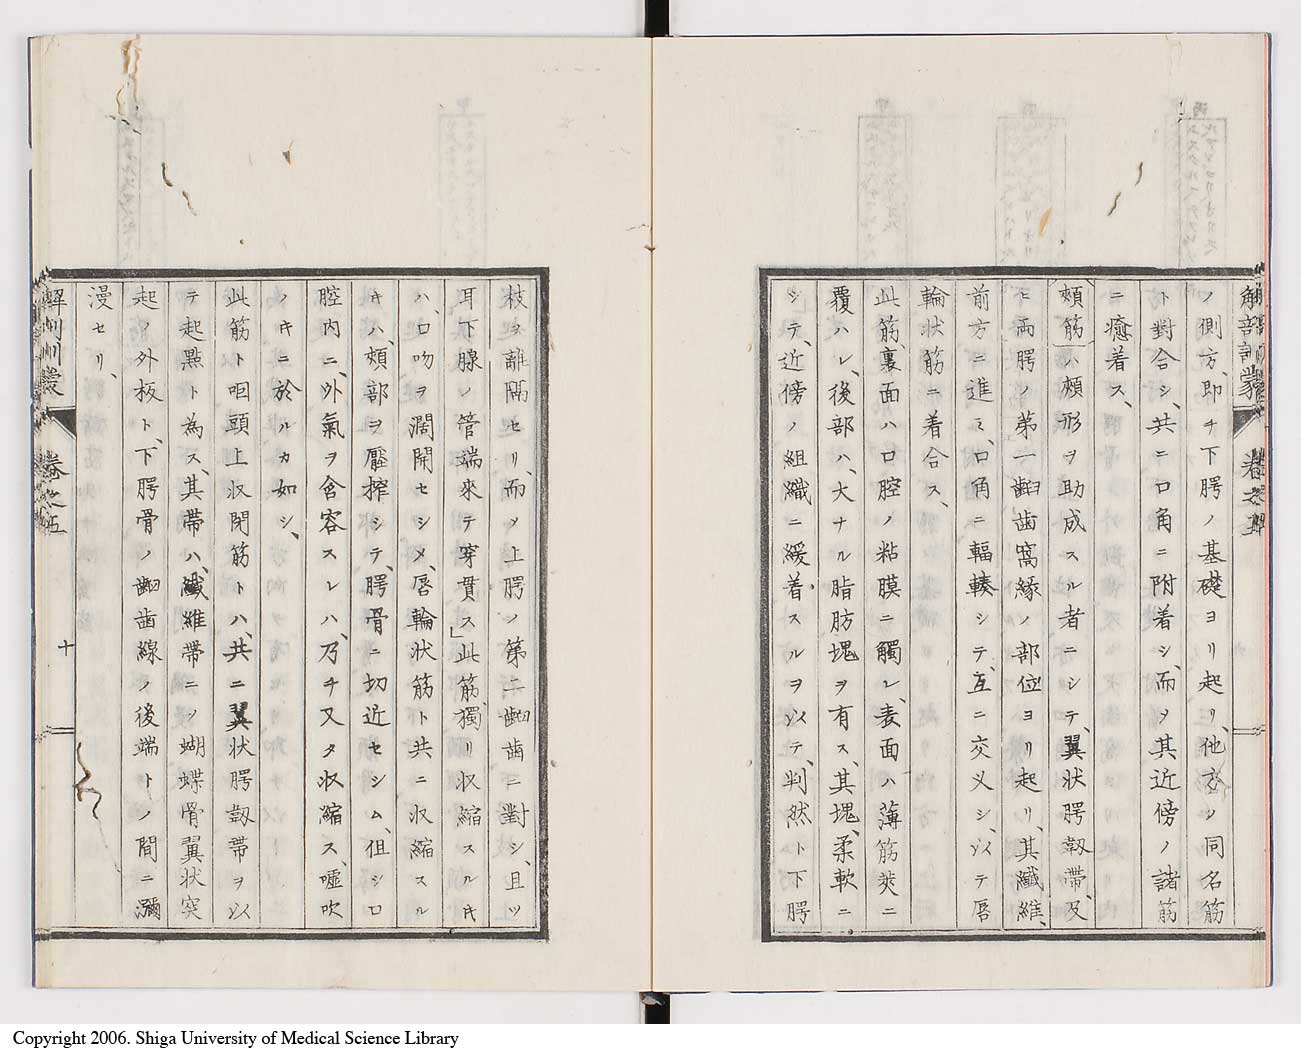 解剖訓蒙 卷之五
ノ側方、即チ下腭ノ基礎ヨリ起リ、他方ノ同名筋
ト對合シ、共ニ口角ニ附着シ、而ヲ其近傍ノ諸筋
ニ癒着ス、
頰筋ハ頰形ヲ助成スル者ニシテ、翼状腭韌帯、及
ヒ両腭ノ第一齣歯窩縁ノ部位ヨリ起リ、其纖維、
前方ニ進ミ、口角ニ輻輳シテ、互ニ交叉シ、以テ唇
輪状筋ニ着合ス、
此筋、裏面ハ口腔ノ粘膜ニ觸レ、表面ハ薄筋莢ニ
覆ハレ、後部ハ、大ナル脂肪塊ヲ有ス、其塊、柔軟ニ
シテ、近傍ノ組織ニ緩着スルヲ以テ、判然ト下腭
枝ヲ離隔セリ、而ヲ上腭ノ第二齣歯ニ對シ、且ツ
耳下腺ノ管端來テ穿貫ス」此筋、獨リ収縮スルキ
ハ、口吻ヲ濶開セシメ、唇輪状筋ト共ニ収縮スル
キハ、頰部ヲ壓搾シテ、腭骨ニ切近セシム、但シ口
腔内ニ、外氣ヲ含容スレハ、乃チ又タ収縮ス、嘘吹
ノキニ於ルカ如シ、
此筋ト咽頭上収閉筋トハ、共ニ翼状腭韌帯ヲ以
テ起點ト為ス、其帯ハ、纖維帯ニノ蝴蝶骨翼状突
起ノ外板ト、下腭骨ノ齣歯線ノ後端トノ間ニ瀰
漫セリ、
解剖訓蒙 卷之五 十
Copyright 2006. Shiga University of Medical Science Library